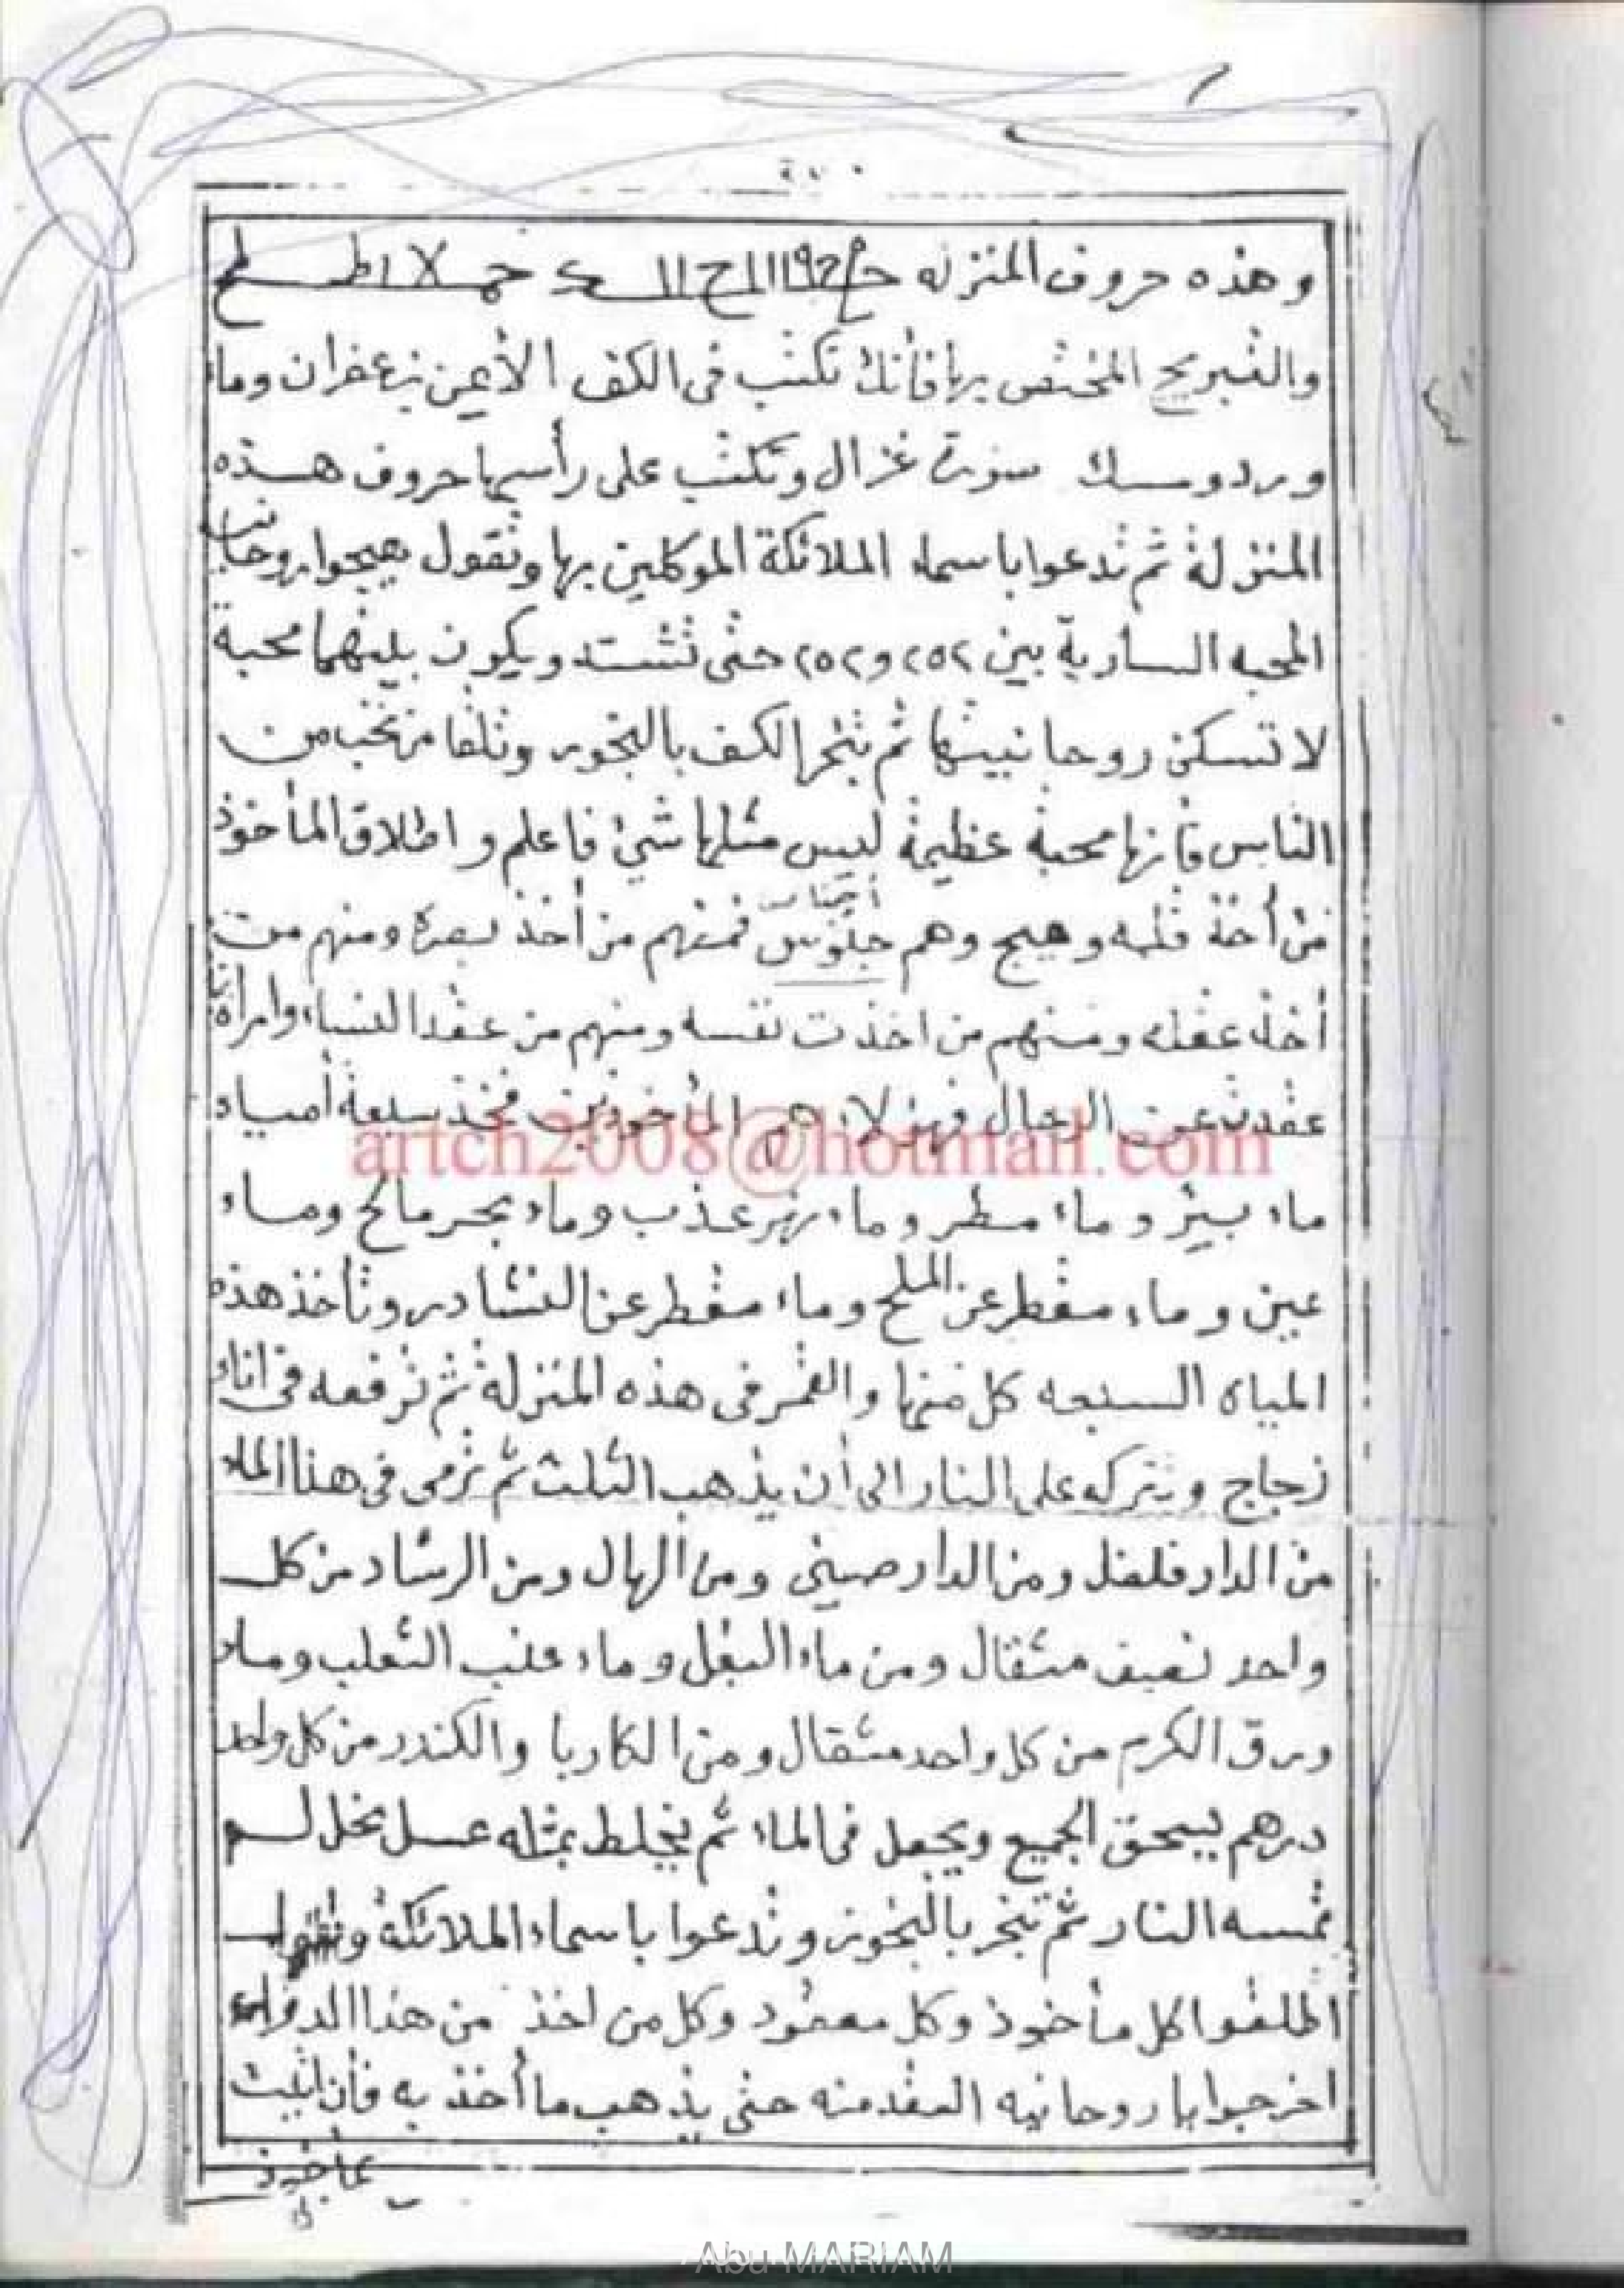 وهذه حروف المنزله
والتبريج المختص بها فأنك تكتب فى الكف الأيمن بزعفران وماء
ورد ومسك صورة غزال وتكتب على رأسها حروف هذه
المنزلة ثم تدعوا باسماء الملائكة الموكلين بها وتقول هيجوا روحانية
المحبه السارية بين ٢٥٢ و٢٥٢ حتى تشتد ويكون بينهما محبة
لا تسكن روحانيتها ثم تبخر الكف بالبخور وتلقا من تحب من
الناس فأنها محبة عظيمة ليس مثلها شئ فاعلم واطلاق المأخوذ
من أخذ قلبه وهيج وهم أجناس فمنهم من أخذ بصره ومنهم من
أخذ عقله ومنهم من اخذت نفسه ومنهم من عقد النساء وامرأة
عقدت عن الرجال فهؤلاء هم المأخوذين فخذ سبعة أمياه
ماء بيئر وماء مطر وماء نهر عذب وماء بحر مالح وماء
عين وماء مقطر عن الملح وماء مقطر عن النشادر وتأخذ هذه
المياه السبعه كل منها والقمر فى هذه المنزلة ثم ترفعه فى اناء
زجاج وتتركه على النار الى أن يذهب الثلث ثم ترمى فى هذا الماء
من الدار فلفل ومن الدار صينى ومن الهال ومن الرشاد من كل
واحد نصف مثقال ومن ماء البقل وماء عنب الثعلب وماء
ورق الكرم من كل واحد مثقال ومن الكاربا والكندر من كل واحد
درهم يسحق الجميع ويجعل فى الماء ثم يخلط بمثله عسل نحل لم
تمسه النار ثم تبخر بالبخور وتدعوا باسماء الملائكة وتقول
اطلقوا كل مأخوذ وكل معقود وكل من اخذ من هذا الدواء
اخرجوا يا روحانيه العقد منه حتى يذهب ما أخذ به فأن اتيت
بمأخوذ
artch2008@hotmail.com
Abu MARIAM